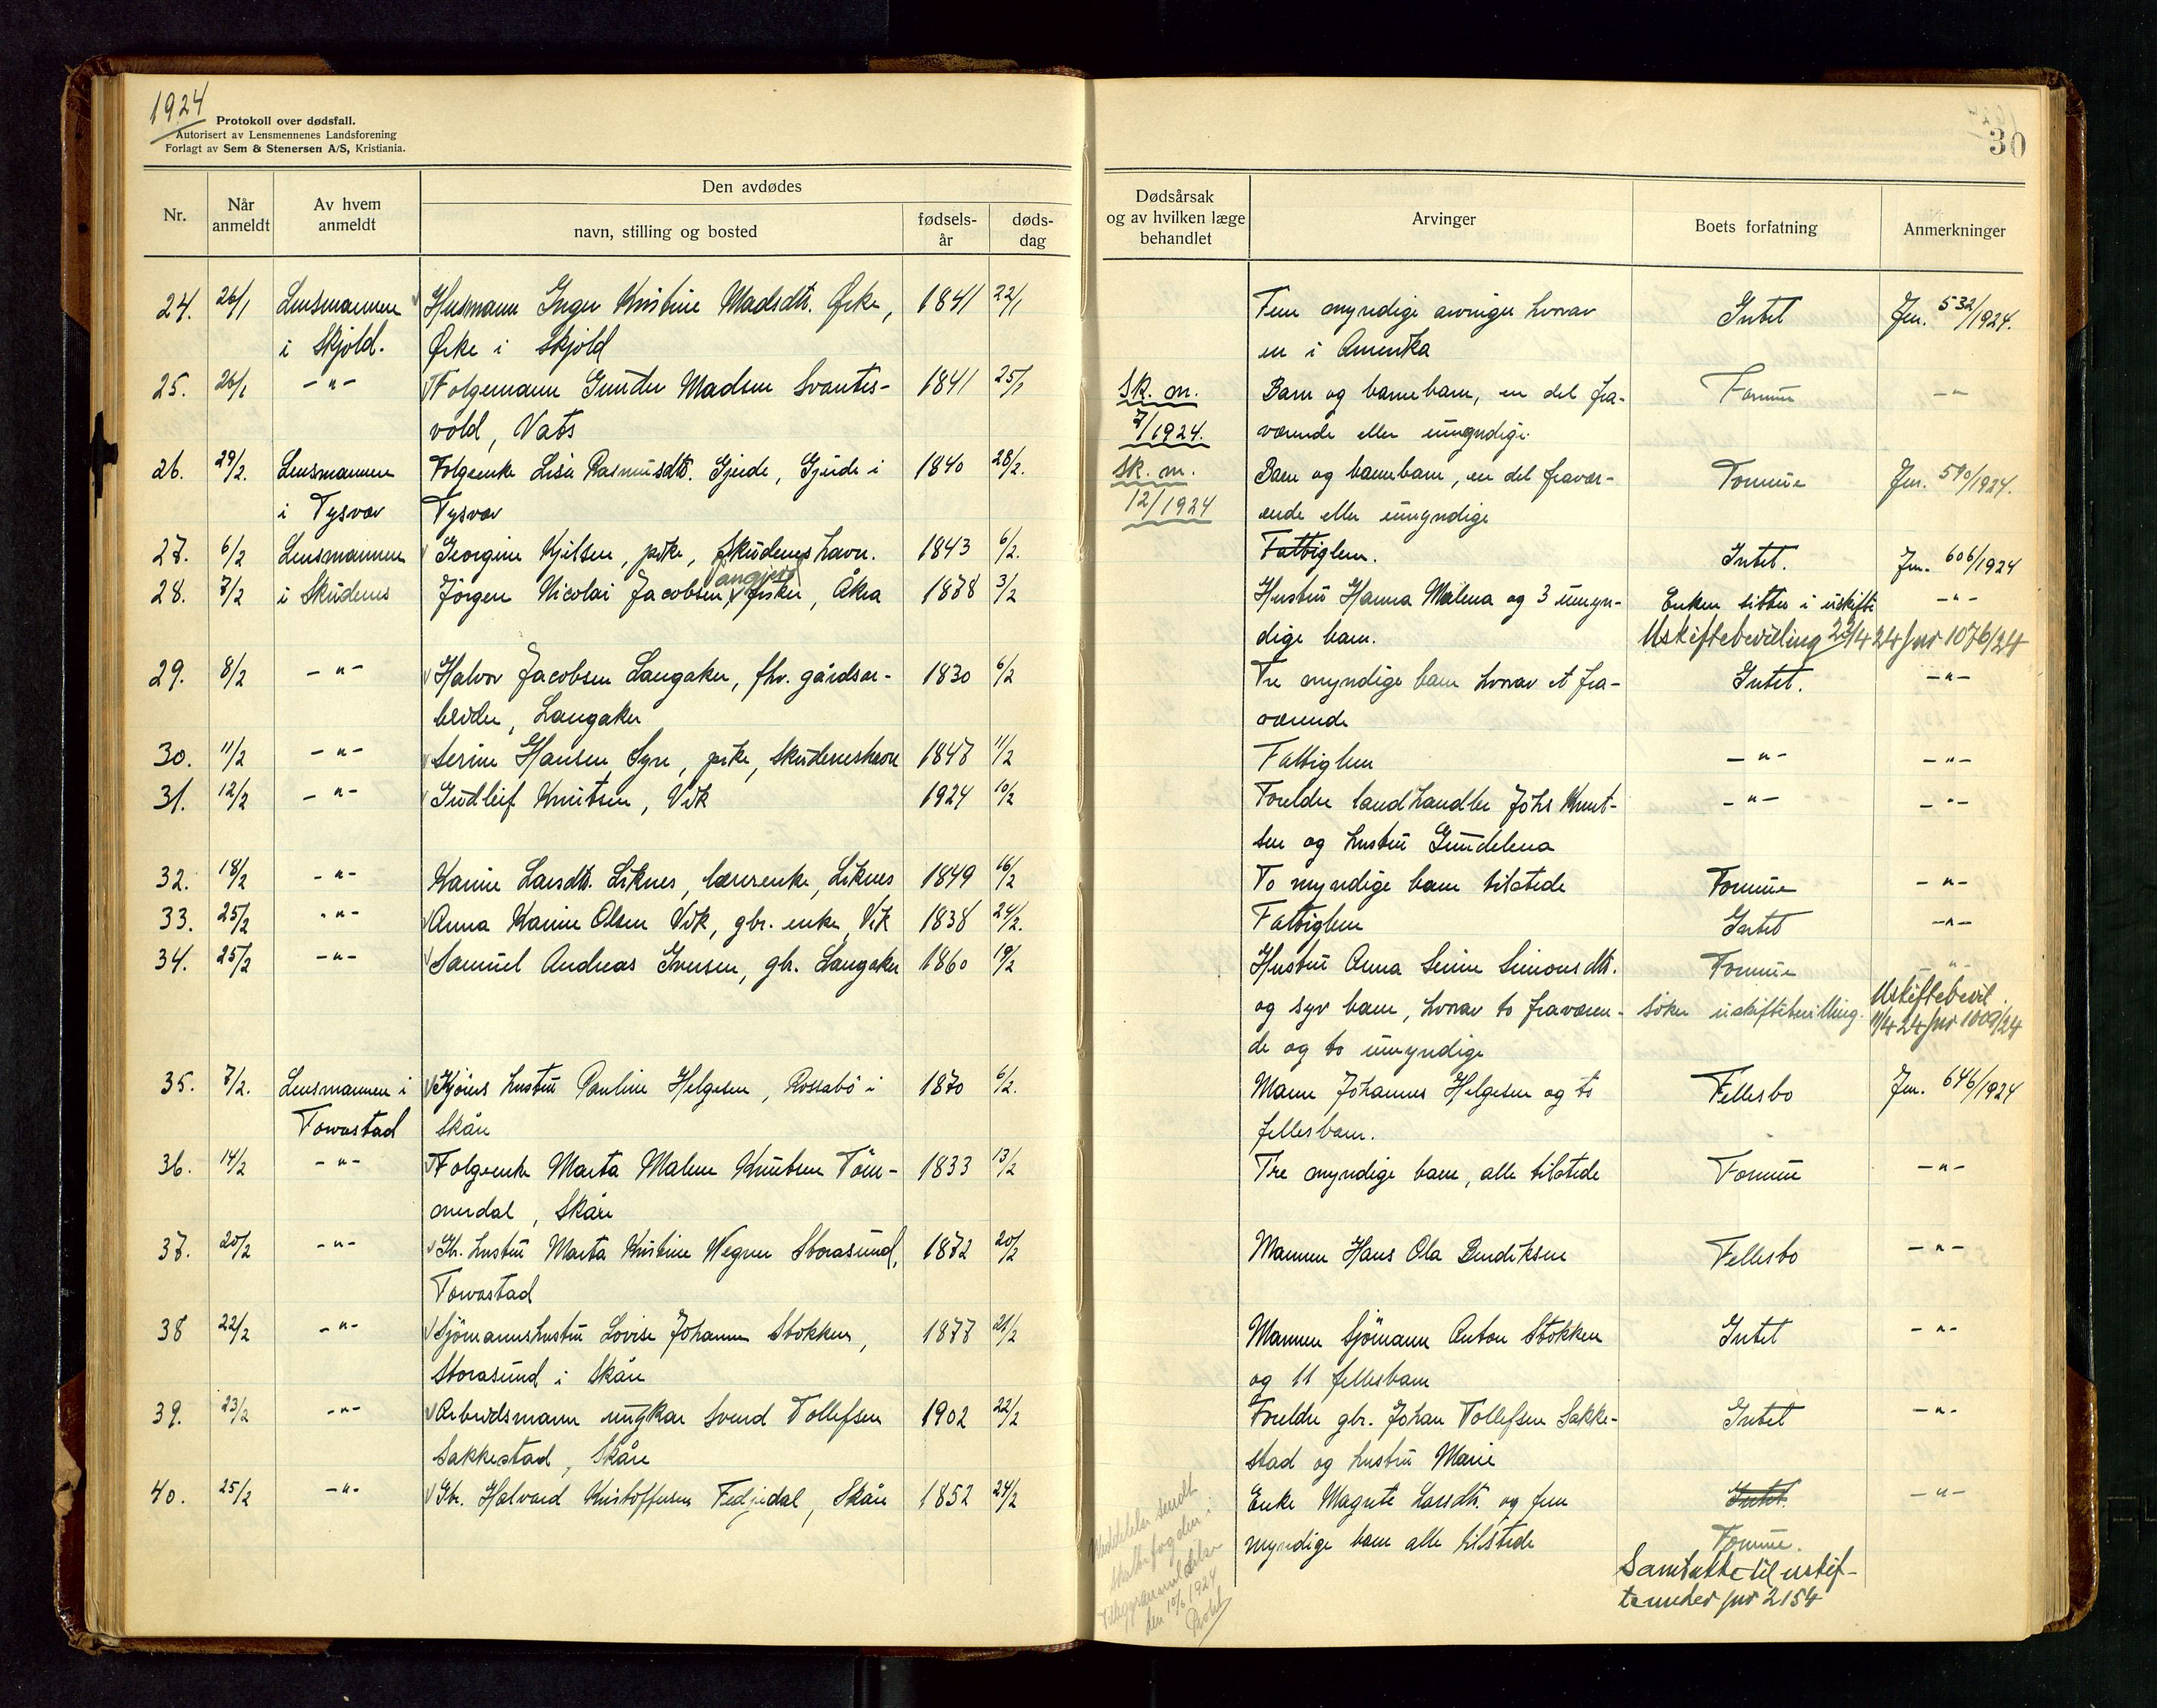 1924
Protokoll over dødsfall.
Autorisert av Lensmennenes Landsforening
Forlagt av Sem & Stenersen A/S, Kristiania.
30
Nr. Når anmeldt Av hvem anmeldt Den avdødes navn, stilling og bosted fødsels-år døds-dag Dødsårsak og av hvilken læge behandlet Arvinger Boets forfatning Anmerkninger
24. 26/1 Lensmannen Husmann Inger Kristine Madsdtr. Ørke, 1841 22/1 Fem myndige arvinger hvorav Intet Jnr. 532/1924.
i Skjold. Ørke i Skjold en i Amerika
25. 26/1 -"- Folgemann Gunder Madsen Svantes- 1841 25/1 Sk. m. Barn og barnebarn, en del fra- Formue -"-
vold, Vats 7/1924. værende eller umyndige.
26. 29/2. Lensmannen Folgeenke Lisa Rasmusdtr. Gjerde, Gjerde i 1840 28/2. Sk. m. Barn og barnebarn, en del fravær- Formue Jnr. 590/1924.
i Tysvær Tysvær 12/1924 ende eller umyndige
27. 6/2 Lensmannen Georgine Kjelsen, pike, Skudeneshavn. 1843 6/2. Fattiglem. Intet. Jnr. 606/1924
28. 7/2 i Skudenes Jörgen Nicolai Jacobsen, fisker, Åkra 1878 3/2 Hustru Hanna Malena og 3 umyn- Enken sitter i uskifte -"-
dige barn. Uskiftebevilling 23/4 24 jnr 1076/24
29. 8/2 -"- Halvor Jacobsen Langaker, fhv. gårdsar- 1830 6/2 Tre myndige barn hvorav et fra- Intet. -"-
beider, Langaker værende
30. 11/2 -"- Serine Hansen Syre, pike, Skudeneshavn 1847 11/2 Fattiglem -"- -"-
31. 12/2 -"- Gudleif Knutsen, Vik 1924 10/2 Foreldre landhandler Johs Knut- -"- -"-
sen og hustru Gundelena
32. 18/2 -"- Karine Larsdtr. Liknes, lærerenke, Liknes 1849 16/2 To myndige barn tilstede Formue -"-
33. 25/2 -"- Anna Karine Olsen Vik, gbr. enke, Vik 1838 24/2. Fattiglem Intet -"-
34. 25/2 -"- Samuel Andreas Iversen, gbr. Langaker 1860 19/2 Hustru Anna Serine Simonsdtr. Formue -"-
og syv barn, hvorav to fraværen- söker uskiftebevilling. Uskiftebevil. 11/4 24 jnr 1009/24
de og to umyndige
35. 7/2. Lensmannen i Kjörers hustru Pauline Helgesen, Rossabö i 1870 6/2. Mann Johannes Helgesen og to Fellesbo Jnr. 646/1924
Torvastad Skåre fellesbarn.
36. 14/2 -"- Folgeenke Marta Malene Knutsen Töm- 1833 13/2 Tre myndige barn, alle tilstede Formue -"-
merdal, Skåre
37. 20/2 -"- Gb. hustru Marta Kristine Wegner Storasund, 1872 20/2 Mannen Hans Ola Bendiksen Fellesbo -"-
Torvastad
38 22/2 -"- Sjömannshustru Lovise Johanne Stokken, 1877 21/2 Mannen Sjömann Anton Stokken Intet -"-
Storasund i Skåre og 11 fellesbarn
39. 23/2 -"- Arbeidsmann ungkar Svend Tollefsen 1902 22/2 Foreldre gbr. Johan Tollefsen Sakke- Intet -"-
Sakkestad, Skåre stad og hustru Marie
40. 25/2 -"- Gbr. Halvard Kristoffersen Fedjedal, Skåre 1852 24/2 Enke Magrete Larsdtr. og fem Intet. -"-
myndige barn alle tilstede Formue.
Samtykke til uskif-
te jnr 2154
Meddelelse sendt
skattefogden i
den 10/6 1924